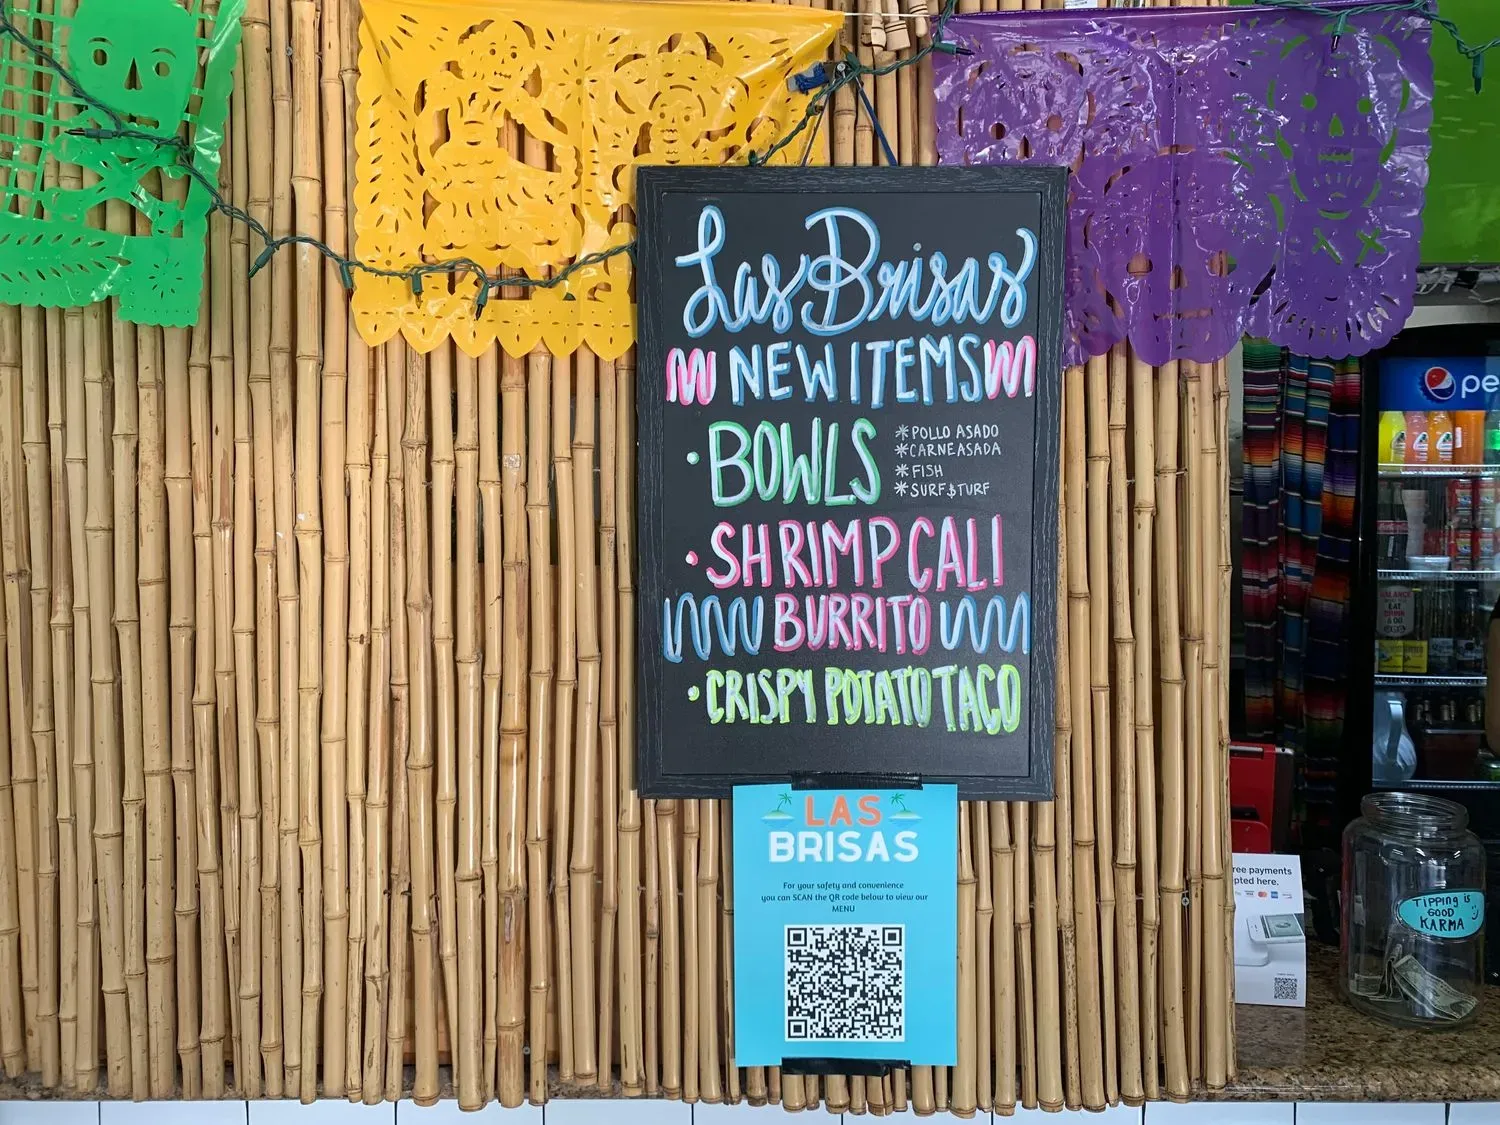 Las Brisas
NEW ITEMS
• BOWLS
* POLLO ASADO
* CARNE ASADA
* FISH
* SURF $ TURF
• SHRIMP CALI
BURRITO
• CRISPY POTATO TACO
LAS
BRISAS
For your safety and convenience
you can SCAN the QR code below to view our
MENU
pe
ree payments
pted here.
TIPPING is
GOOD
KARMA